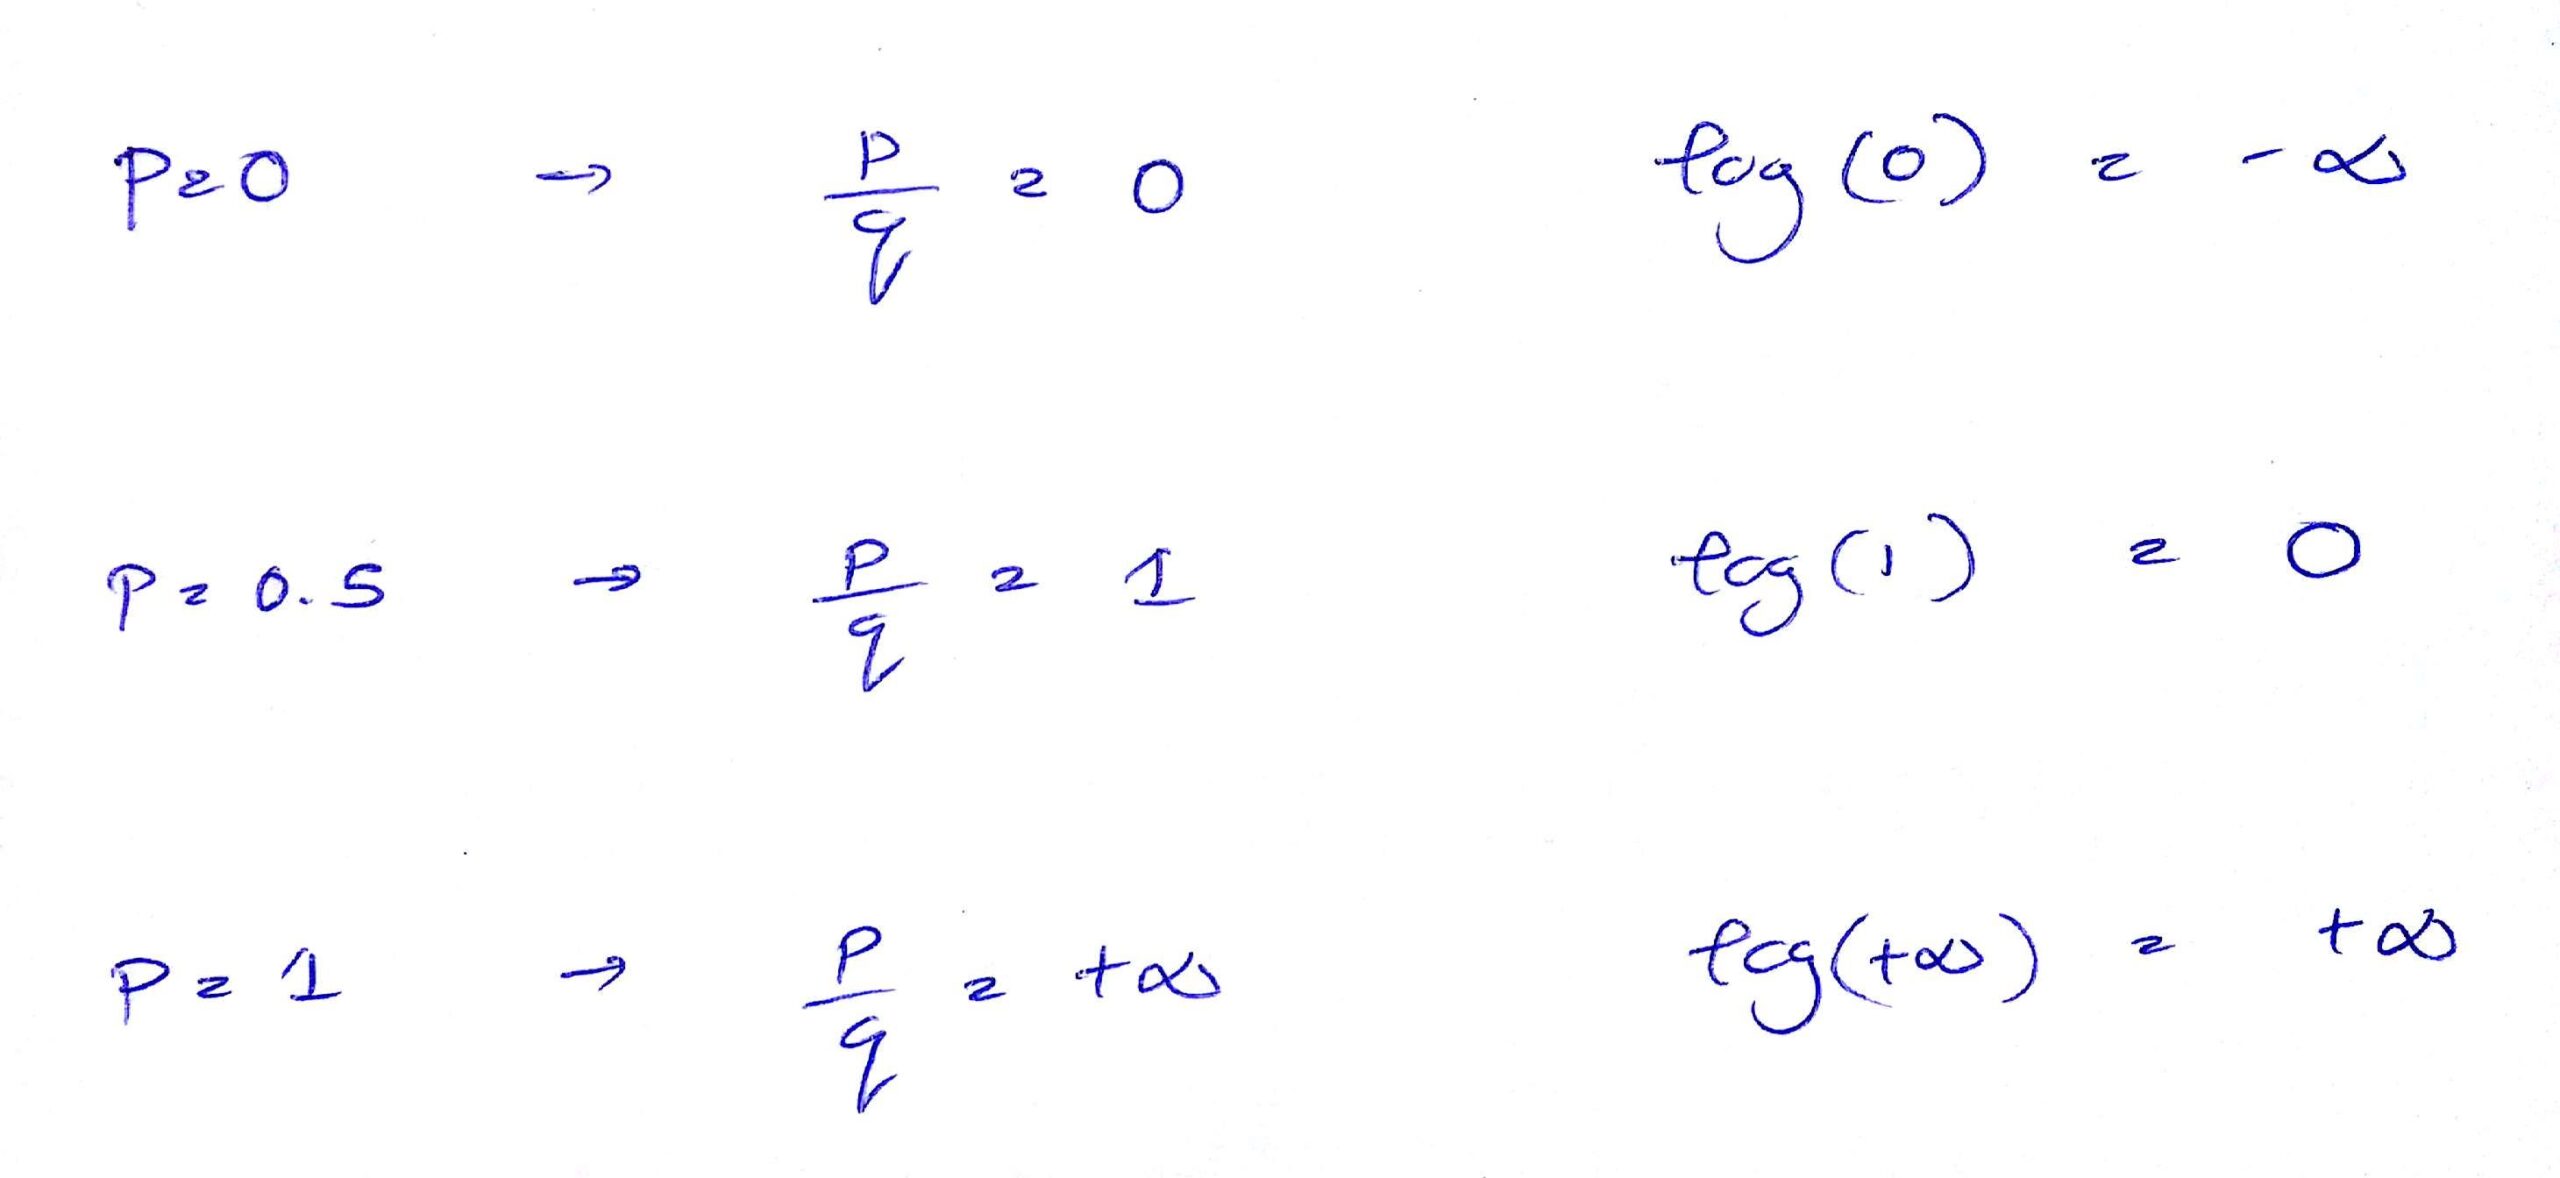 P=0 → p/q = 0 log(0) = -∞
P = 0.5 → p/q = 1 log(1) = 0
P = 1 → p/q = +∞ log(+∞) = +∞